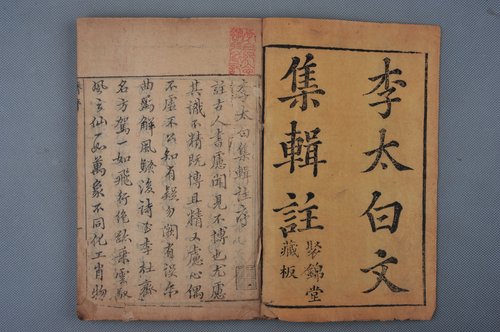 李太白文
集輯註
聚錦堂
藏板
李太白集輯註序
註古人書慮聞見不博也尤慮
其識不精既博且精又慮心偶
不虛不公知有疑勿闕有誤尔
曲為解風騷後詩至李杜齊
名方駕一如飛行絕跡乘雲馭
風之仙一如萬象不同化工肖物